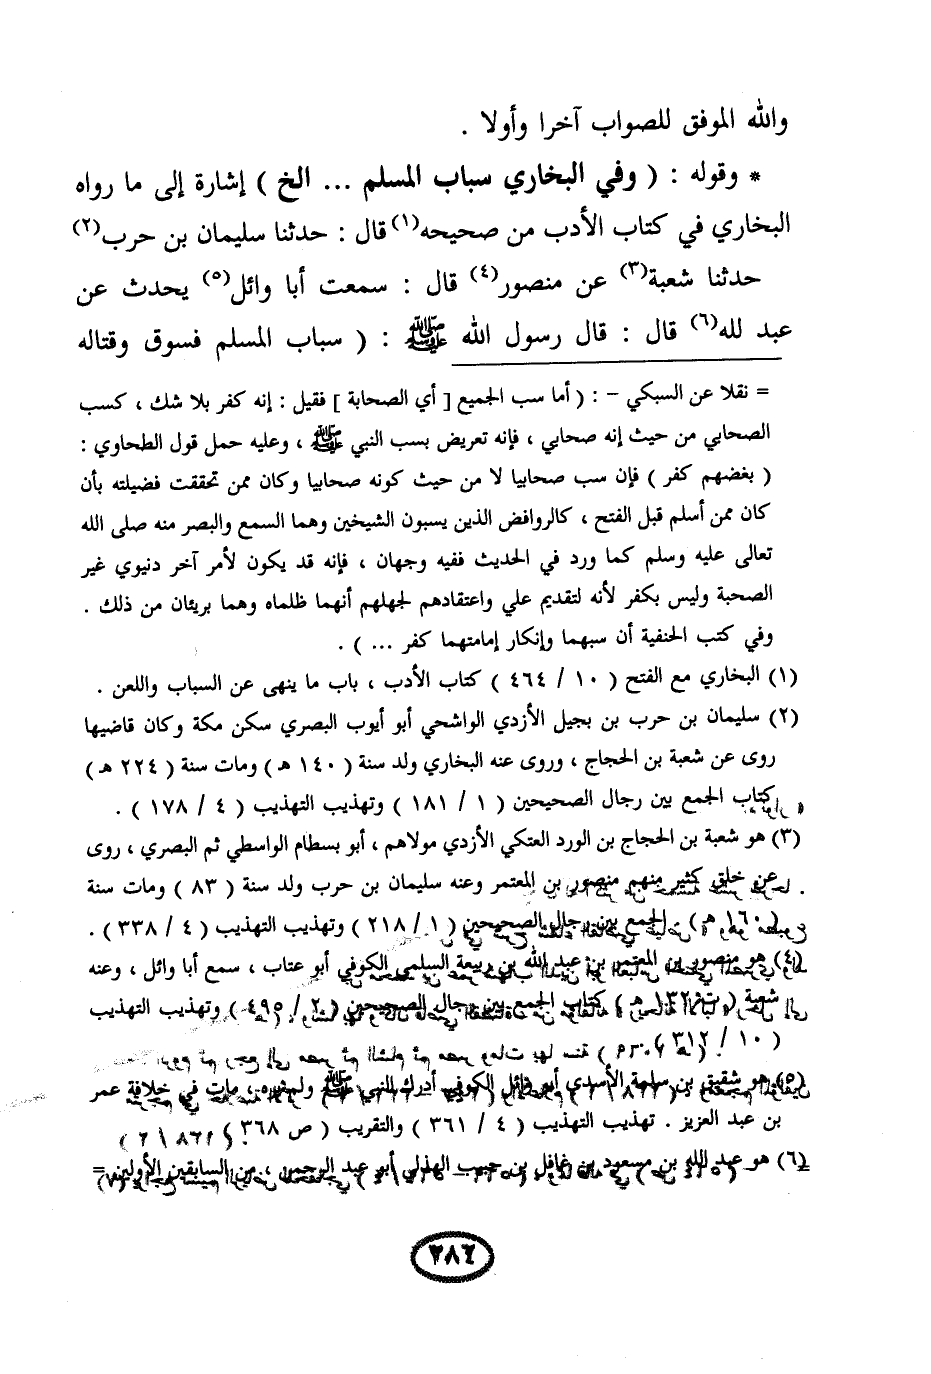 والله الموفق للصواب آخرا وأولا .
* وقوله : ( وفي البخاري سباب المسلم ... الخ ) إشارة إلى ما رواه
البخاري في كتاب الأدب من صحيحه(١) قال : حدثنا سليمان بن حرب(٢)
حدثنا شعبة(٣) عن منصور(٤) قال : سمعت أبا وائل(٥) يحدث عن
عبد لله(٦) قال : قال رسول الله ﷺ : ( سباب المسلم فسوق وقتاله
= نقلا عن السبكي - : ( أما سب الجميع [ أي الصحابة ] فقيل : إنه كفر بلا شك ، كسب
الصحابي من حيث إنه صحابي ، فإنه تعريض بسب النبي ﷺ ، وعليه حمل قول الطحاوي :
( بغضهم كفر ) فإن سب صحابيا لا من حيث كونه صحابيا وكان ممن تحققت فضيلته بأن
كان ممن أسلم قبل الفتح ، كالروافض الذين يسبون الشيخين وهما السمع والبصر منه صلى الله
تعالى عليه وسلم كما ورد في الحديث ففيه وجهان ، فإنه قد يكون لأمر آخر دنيوي غير
الصحبة وليس بكفر لأنه لتقديم علي واعتقادهم لجهلهم أنهما ظلماه وهما بريئان من ذلك .
وفي كتب الحنفية أن سبهما وإنكار إمامتهما كفر ... ) .
(١) البخاري مع الفتح ( ١٠ / ٤٦٤ ) كتاب الأدب ، باب ما ينهى عن السباب واللعن .
(٢) سليمان بن حرب بن بجيل الأزدي الواشحي أبو أيوب البصري سكن مكة وكان قاضيها
روى عن شعبة بن الحجاج ، وروى عنه البخاري ولد سنة ( ١٤٠ هـ ) ومات سنة ( ٢٢٤ هـ )
كتاب الجمع بين رجال الصحيحين ( ١ / ١٨١ ) وتهذيب التهذيب ( ٤ / ١٧٨ ) .
(٣) هو شعبة بن الحجاج بن الورد العتكي الأزدي مولاهم ، أبو بسطام الواسطي ثم البصري ، روى
عن خلق كثير منهم منصور بن المعتمر وعنه سليمان بن حرب ولد سنة ( ٨٣ ) ومات سنة
( ١٦٠ هـ ) . الجمع بين رجال الصحيحين ( ١ / ٢١٨ ) وتهذيب التهذيب ( ٤ / ٣٣٨ ) .
(٤) هو منصور بن المعتمر بن عبد الله بن ربيعة السلمي الكوفي أبو عتاب ، سمع أبا وائل ، وعنه
شعبة ( ت ١٣٢ هـ ) كتاب الجمع بين رجال الصحيحين ( ٢ / ٤٩٥ ) وتهذيب التهذيب
( ١٠ / ٣١٢ )
(٥) هو شقيق بن سلمة الأسدي أبو وائل الكوفي أدرك النبي ﷺ ولم يره ، مات في خلافة عمر
بن عبد العزيز . تهذيب التهذيب ( ٤ / ٣٦١ ) والتقريب ( ص ٣٦٨ )
(٦) هو عبد الله بن مسعود بن غافل بن حبيب الهذلي أبو عبد الرحمن ، من السابقين الأولين =
٢٨٦